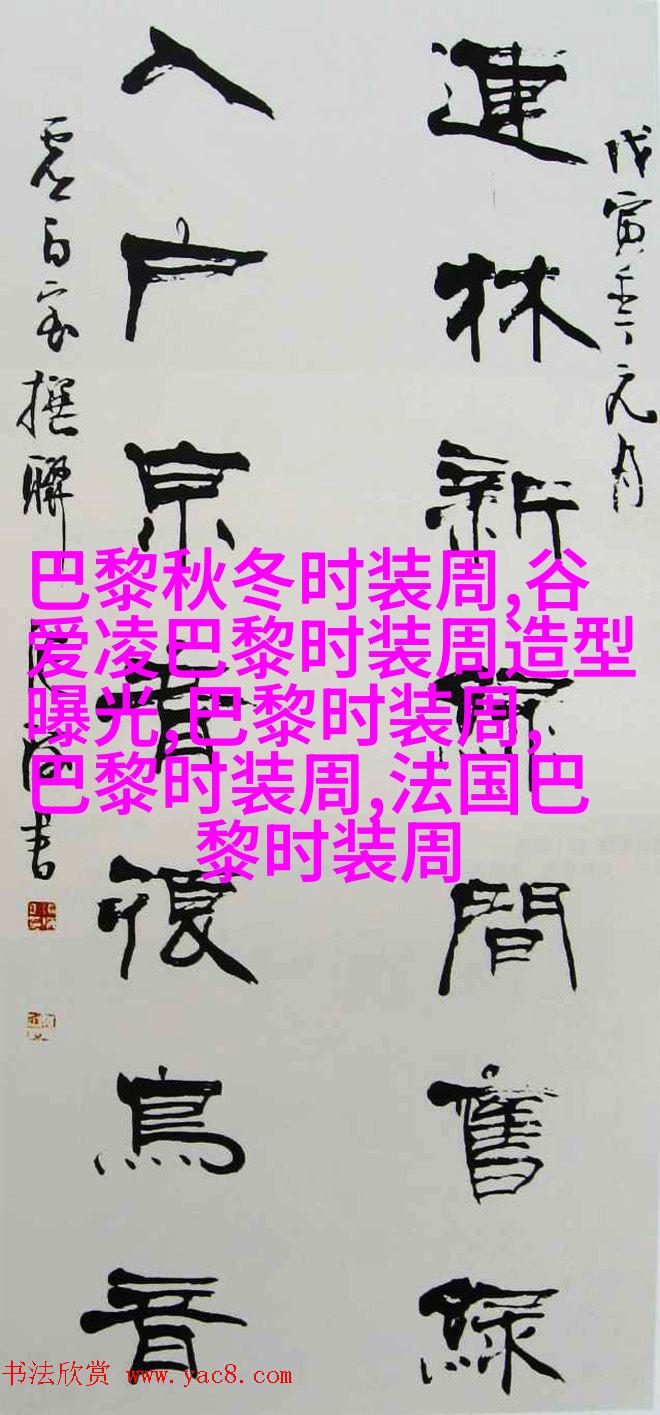 戊寅年元月
連林新綠間舊綠
入戶京音鳥音
撰聯
書
巴黎秋冬时装周,谷
爱凌巴黎时装周造型
曝光,巴黎时装周,
巴黎时装周,法国巴
黎时装周
书法欣赏 www.yac8.com